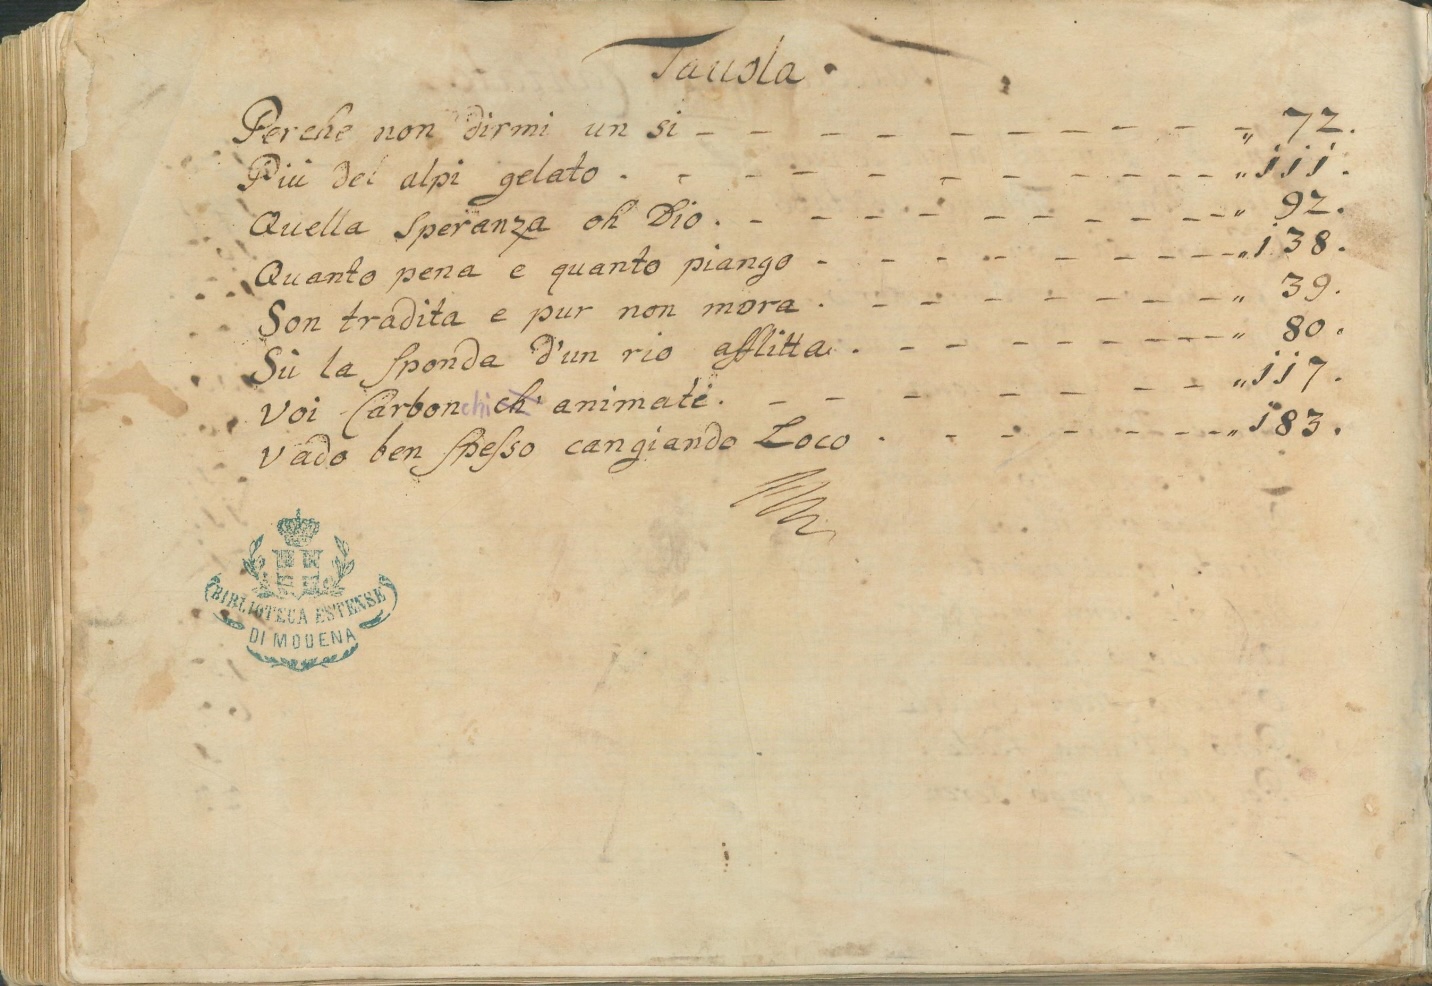 Tauola.
Perche non dirmi un si „ 72.
Più del alpi gelato „ 111.
Quella speranza oh Dio. „ 92.
Quanto pena e quanto piango „ 138.
Son tradita e pur non mora „ 39.
Sù la sponda d'un rio afflitta „ 80.
Voi Carbonchi ch' animate. „ 117.
Vado ben spesso cangiando Loco „ 183.
BIBLIOTECA ESTENSE
DI MODENA